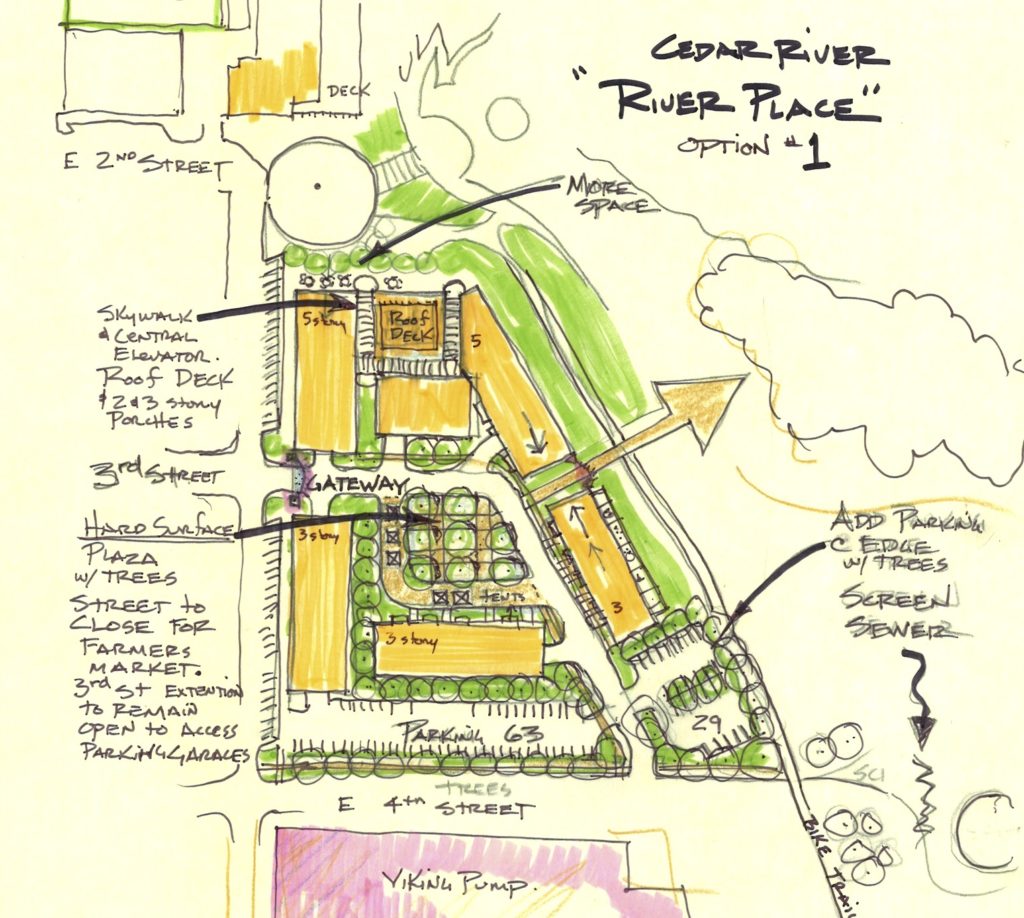 CEDAR RIVER
"RIVER PLACE"
OPTION #1
DECK
E 2ND STREET
MORE
SPACE
SKYWALK
& CENTRAL
ELEVATOR.
ROOF DECK
& 2 & 3 story
PORCHES
5 story
ROOF
DECK
5
3rd STREET
GATEWAY
HARD SURFACE
PLAZA
W/ TREES
STREET to
CLOSE FOR
FARMERS
MARKET.
3rd St EXTENTION
to REMAIN
OPEN to ACCESS
PARKING GARAGES
3 story
TENTS
3 story
3
ADD PARKING
@ EDGE
W/ TREES
SCREEN
SEWER
PARKING 63
29
TREES
E 4th STREET
BIKE TRAIL
VIKING PUMP.